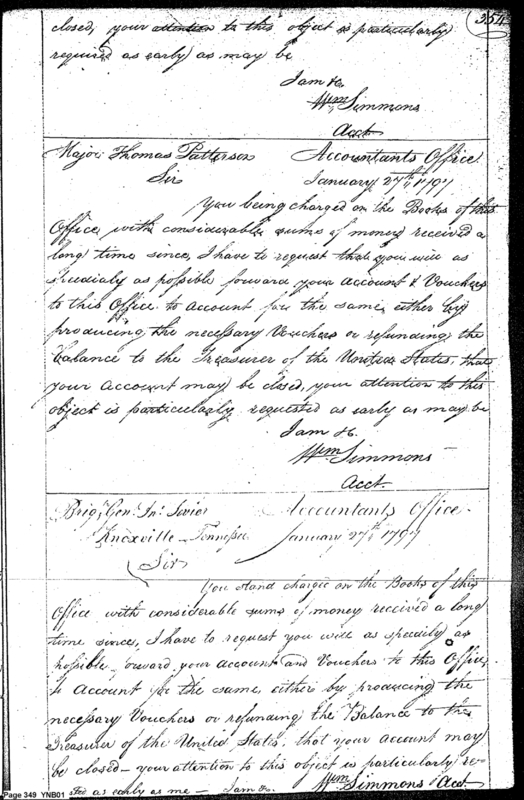 354
closed, your attention to this object is particularly
required as early as may be
I am &c.
Wm Simmons
Acct
Major Thomas Patterson Accountants Office
Sir January 27th 1797
You being charged on the Books of this
Office with considerable sums of money received a
long time since, I have to request that you will as
speedialy as possible forward your account & Vouchers
to this Office to account for the same, either by
producing the necessary Vouchers or refunding the
Balance to the Treasurer of the United States, that
your account may be closed, your attention to this
object is particularly requested as early as may be
I am &c.
Wm Simmons
Acct.
Brig. Gen. Jno Sevier Accountants Office
Knoxville Tennessee January 27th 1797
Sir
You stand charged on the Books of this
Office with considerable sums of money received a long
time since, I have to request you will as speedily as
possible forward your account and Vouchers to this Office
to account for the same, either by producing the
necessary Vouchers or refunding the Balance to the
Treasurer of the United States, that your account may
be closed - your attention to this object is particularly re-
as early as me - I am &c. Wm Simmons Acct.
Page 349 YNB01